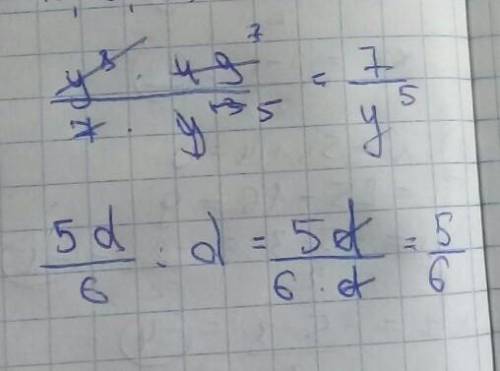 7
y · 49
7 · y 5 = 7 / y^5
5d / 6 : d = 5d / 6 · d = 5 / 6